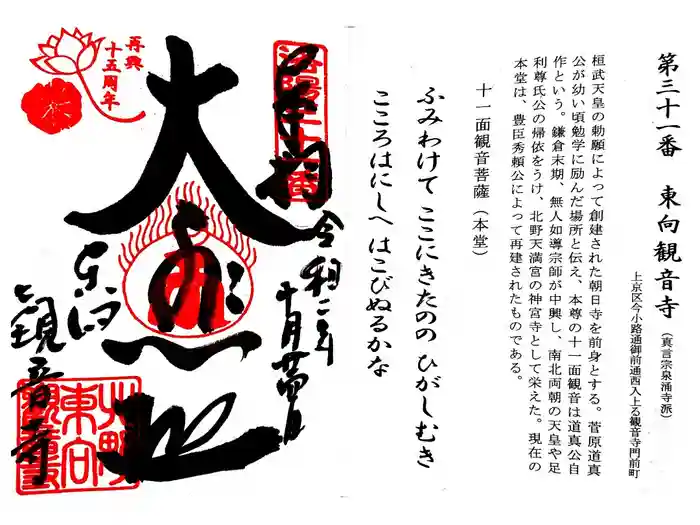 第三十一番　東向観音寺（真言宗泉涌寺派）
上京区今小路通御前通西入上る観音寺門前町
桓武天皇の勅願によって創建された朝日寺を前身とする。菅原道真
公が幼い頃勉学に励んだ場所と伝え、本尊の十一面観音は道真公自
作という。鎌倉末期、無人如導宗師が中興し、南北両朝の天皇や足
利尊氏公の帰依をうけ、北野天満宮の神宮寺として栄えた。現在の
本堂は、豊臣秀頼公によって再建されたものである。
十一面観音菩薩（本堂）
ふみわけて ここにきたのの ひがしむき
こころはにしへ はこびぬるかな
奉拝
令和二年
十月廿四日
洛陽三十一番
大悲殿
東向
観音寺
再興
十五周年